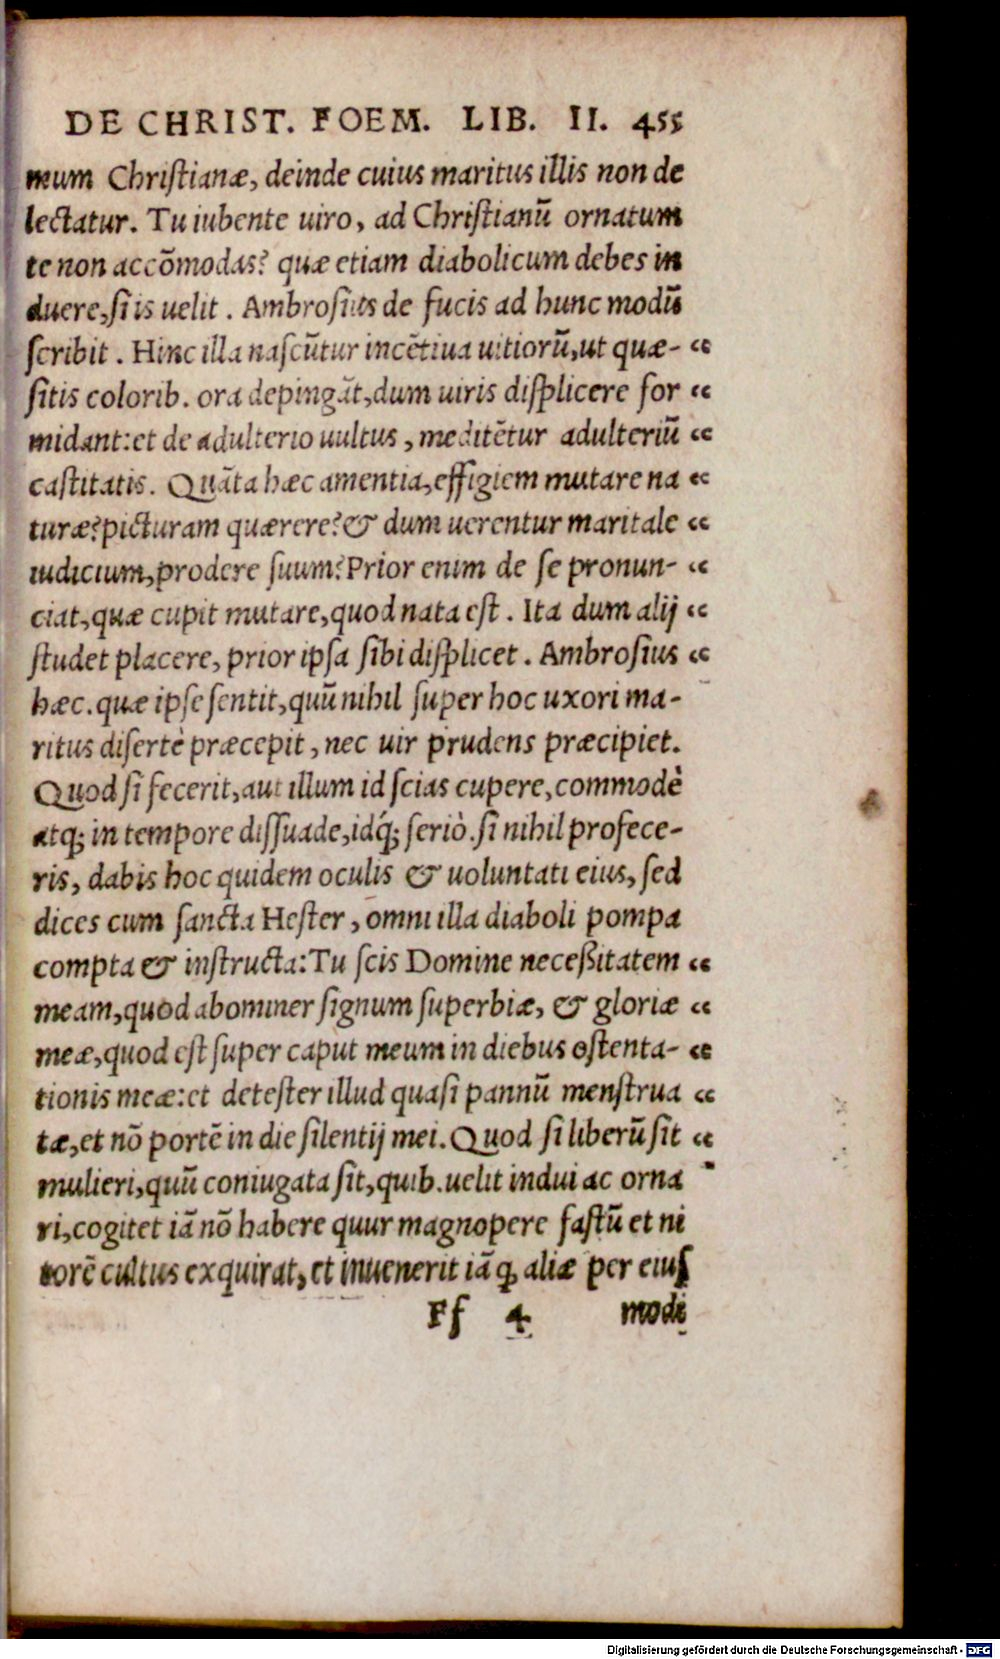 DE CHRIST. FOEM. LIB. II. 455
mum Christianæ, deinde cuius maritus illis non de
lectatur. Tu iubente uiro, ad Christianũ ornatum
te non accõmodas? quæ etiam diabolicum debes in
duere, si is uelit. Ambrosius de fucis ad hunc modũ
scribit. Hinc illa nascũtur incẽtiua uitiorũ, ut quæ- “
sitis colorib. ora depingãt, dum uiris displicere for “
midant: et de adulterio uultus, meditẽtur adulteriũ “
castitatis. Quãta hæc amentia, effigiem mutare na “
turæ? picturam quærere? & dum uerentur maritale “
iudicium, prodere suum? Prior enim de se pronun- “
ciat, quæ cupit mutare, quod nata est. Ita dum alij “
studet placere, prior ipsa sibi displicet. Ambrosius “
hæc. quæ ipse sentit, quũ nihil super hoc uxori ma-
ritus disertè præcepit, nec uir prudens præcipiet.
Quod si fecerit, aut illum id scias cupere, commodè
atq; in tempore dissuade, idq́; seriò. si nihil profece-
ris, dabis hoc quidem oculis & uoluntati eius, sed
dices cum sancta Hester, omni illa diaboli pompa
compta & instructa: Tu scis Domine neceßitatem “
meam, quod abominer signum superbiæ, & gloriæ “
meæ, quod est super caput meum in diebus ostenta- “
tionis meæ: et detester illud quasi pannũ menstrua “
tæ, et nõ portẽ in die silentij mei. Quod si liberũ sit “
mulieri, quũ coniugata sit, quib. uelit indui ac orna
ri, cogitet iã nõ habere quur magnopere fastũ et ni
torẽ cultus exquirat, et inuenerit iã q; aliæ per eius
Ff 4 modi
Digitalisierung gefördert durch die Deutsche Forschungsgemeinschaft - DFG